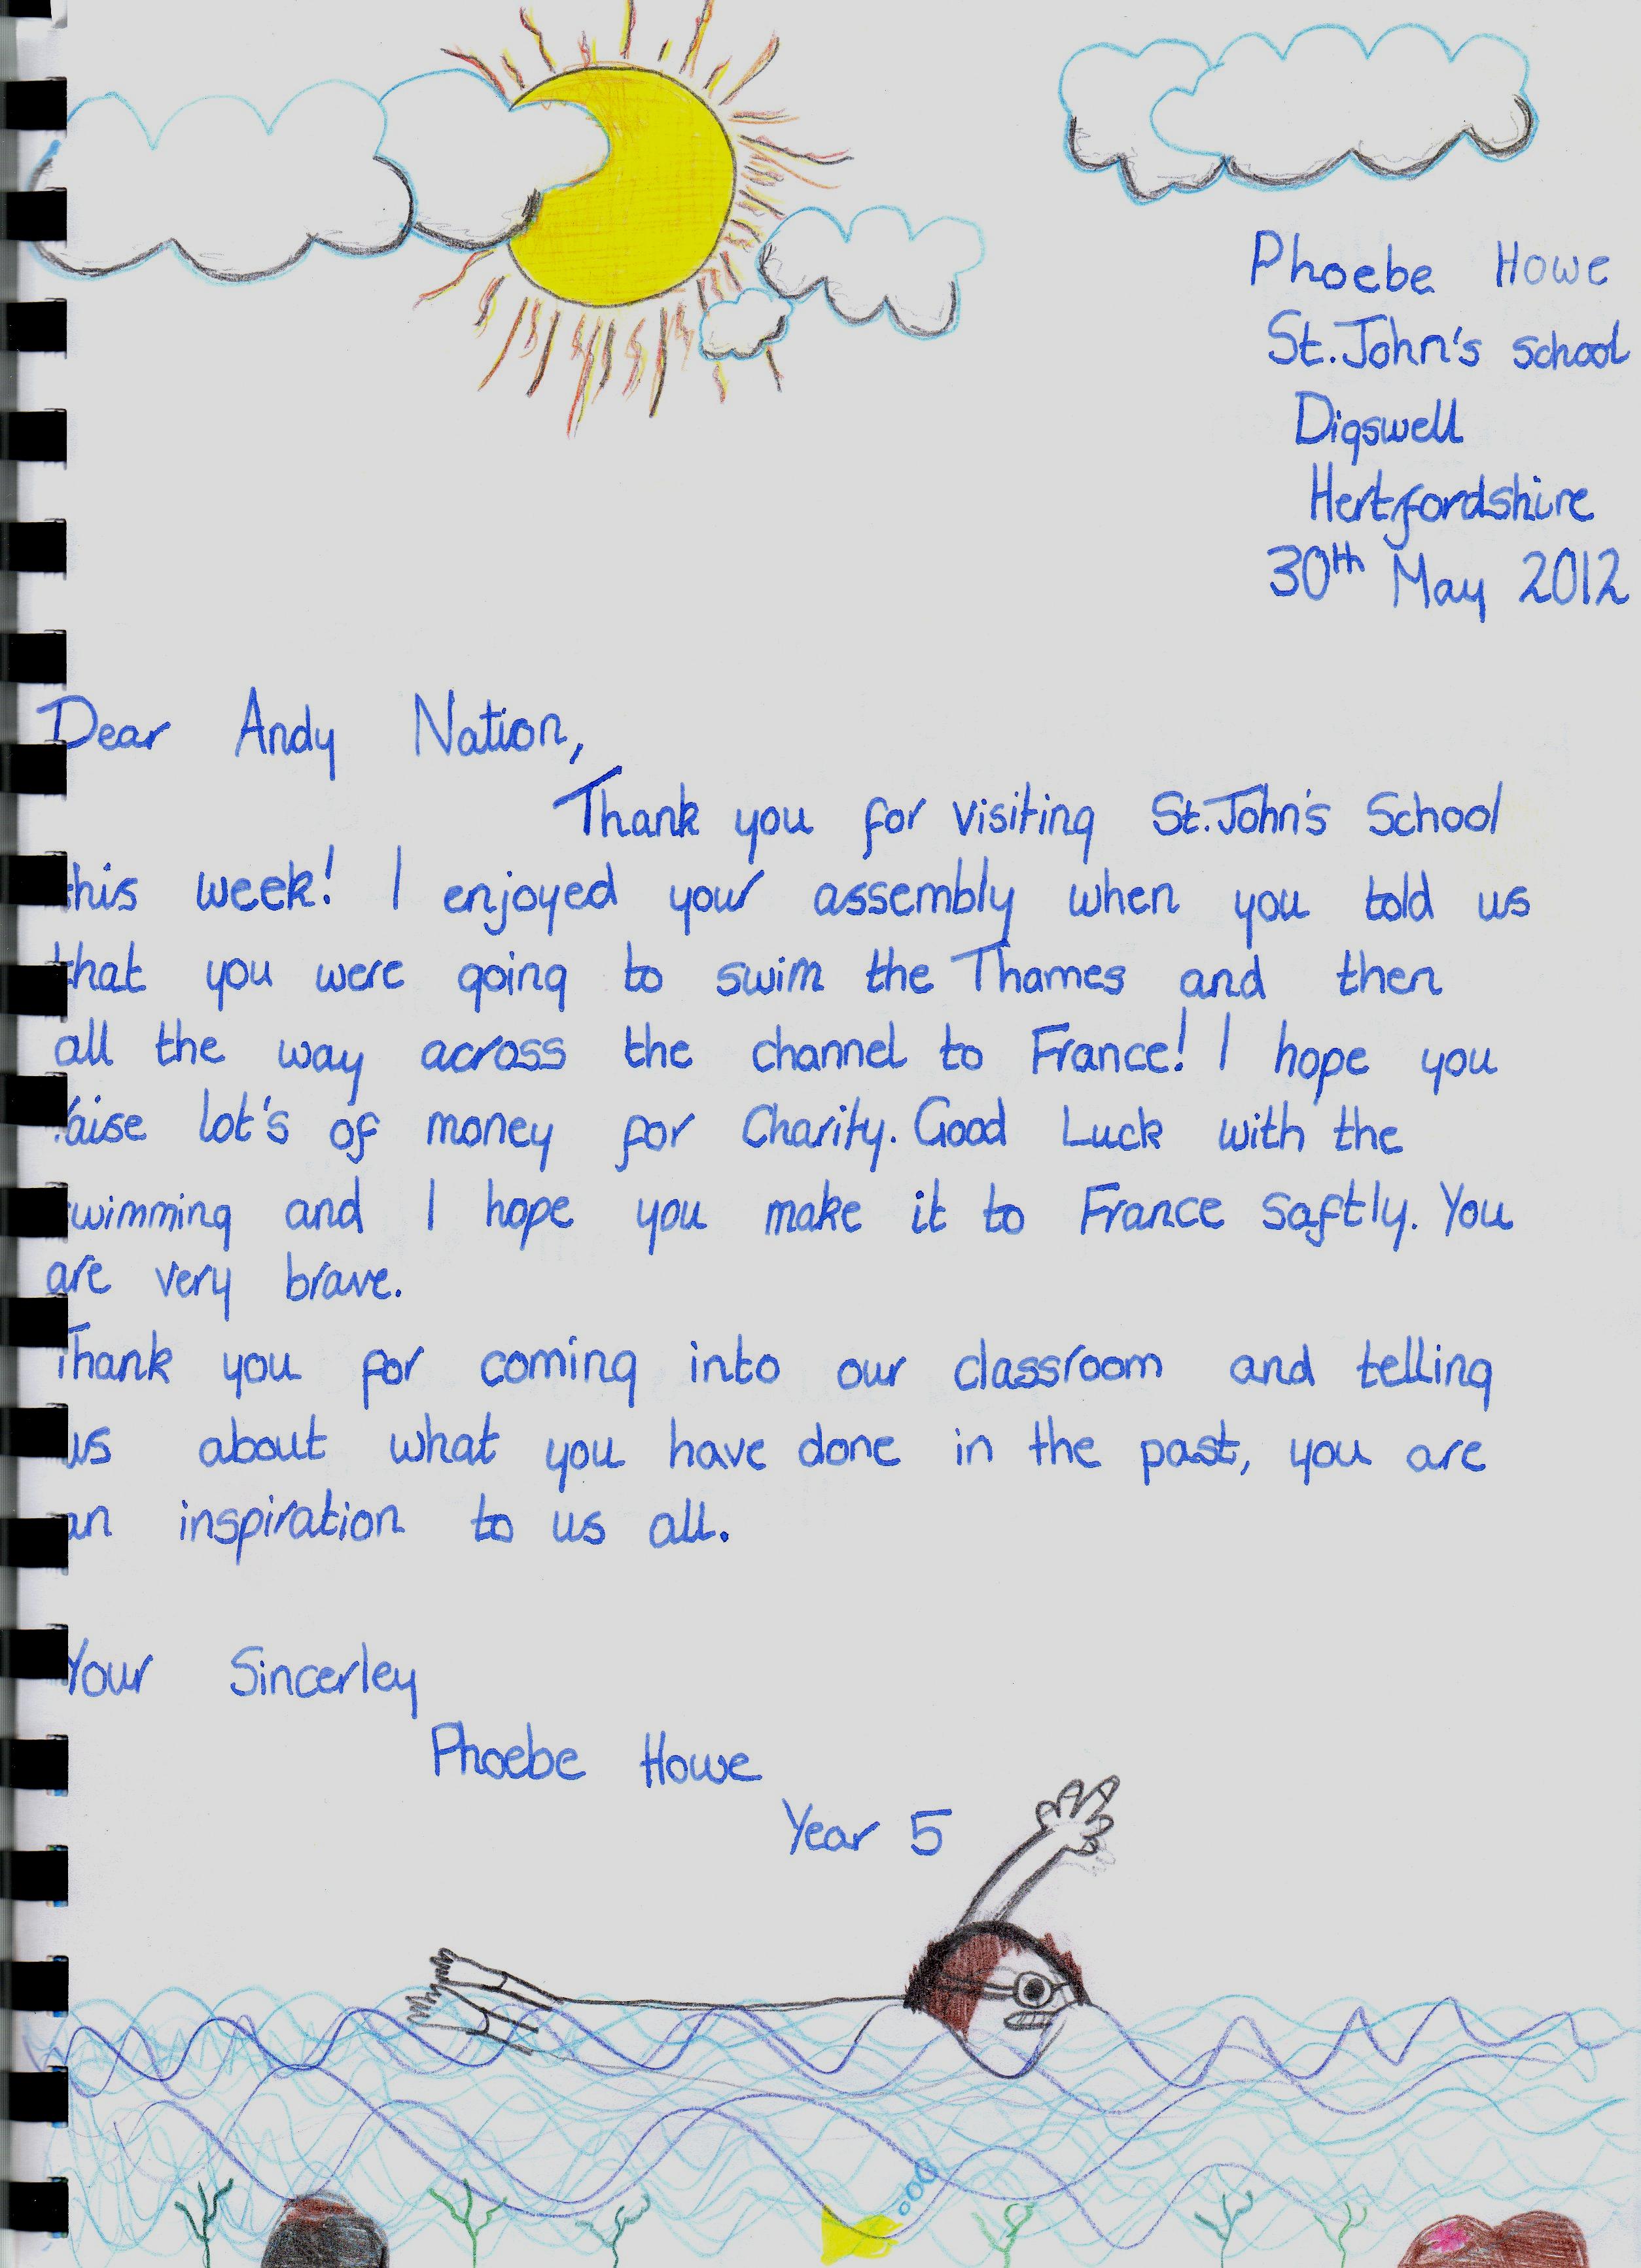 Phoebe Howe
St. John's school
Digswell
Hertfordshire
30th May 2012
Dear Andy Nation,
Thank you for visiting St. John's School
this week! I enjoyed your assembly when you told us
that you were going to swim the Thames and then
all the way across the channel to France! I hope you
raise lot's of money for Charity. Good Luck with the
swimming and I hope you make it to France saftly. You
are very brave.
Thank you for coming into our classroom and telling
us about what you have done in the past, you are
an inspiration to us all.
Your Sincerley
Phoebe Howe
Year 5